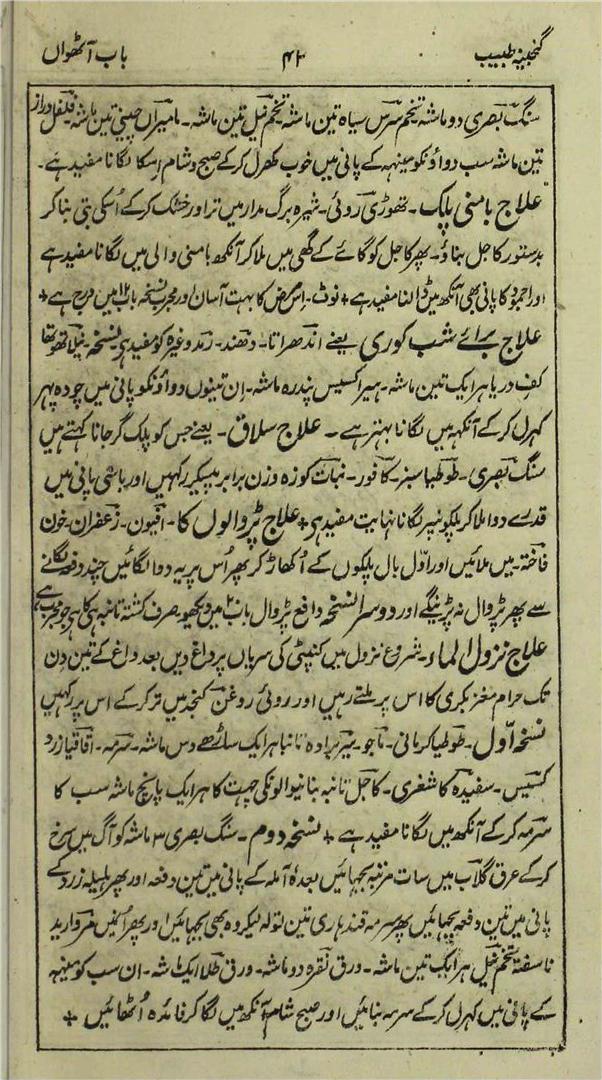 گنجینہ طبیب ۴۳ باب آٹھواں
سنگ بصری دو ماشہ تخم سرس سیاہ تین ماشہ تخم نیل تین ماشہ۔ مامیراں چینی تین ماشہ۔ فلفل دراز
تین ماشہ سب دواؤنکو مینہہ کے پانی میں خوب کھرل کرکے صبح و شام اسکا لگانا مفید ہے۔
علاج بامنی پلک۔ تھوڑی روئی۔ شیرہ برگ مدار میں تر اور خشک کرکے اُسکی بتی بنا کر
بدستور کاجل بناؤ۔ پھر کاجل کو گائے کے گھی میں ملا کر آنکھ بامنی والی میں لگانا مفید ہے
اور اجمود کا پانی بھی آنکھ میں ڈالنا مفید ہے + نوٹ۔ اس مرض کا بہت آسان اور مجرب نسخہ باب ۱۲ میں درج ہے +
علاج برائے شب کوری یعنے اندھراتا۔ دھند۔ رمد وغیرہ کو مفید ہی نسخہ۔ نیلا تھوتھا
کف دریا ہر ایک تین ماشہ۔ ہیرا کسیس پندرہ ماشہ۔ ان تینوں دواؤنکو پانی میں چودہ پہر
کہرل کرکے آنکہہ میں لگانا بہتر ہے۔ علاج سلاق۔ یعنے جس کو پلک گرجانا کہتے ہیں
سنگ بصری۔ طوطیا سبز۔ کافور۔ نبات کوزہ وزن برابر پیسکر رکہیں اور باشی پانی میں
قدرے دوا ملا کر پلکو نپر لگانا نہایت مفید ہی + علاج پڑوالوں کا۔ افیون۔ زعفران۔ خون
فاختہ۔ میں ملائیں اور اوّل بال پلکوں کے اُکھاڑ کر پھر اُس پر یہ دوا لگائیں چند دفعہ لگانے
سے پھر پڑوال نہ پڑینگے اور دوسرا نسخہ دافع پڑوال باب میں دیکھو۔ صرف کشتہ تانبہ ہی کا ہی جو مجرب ہے
علاج نزول الماء۔ شروع نزول میں کنپٹی کی سریاں پر داغ دیں بعد داغ کے تین دن
تک حرام مغز بکری کا اس پر ملتے رہیں اور روئی روغن کنجد میں تر کرکے اس پر رکہیں
نسخہ اوّل۔ طوطیا کرمانی۔ ماجو۔ برادہ تانبا ہر ایک ساڑھے دس ماشہ۔ سرمہ۔ اقاقیا زرد
کسیس۔ سفیدہ کاشغری۔ کاجل تانبہ بنانیوالونکی چہت کا ہر ایک پانچ ماشہ سب کا
سرمہ کرکے آنکھ میں لگانا مفید ہے + نسخہ دوم۔ سنگ بصری ۳ ماشہ کو آگ میں سرخ
کرکے عرق گلاب میں سات مرتبہ بجہائیں بعدہٗ آملہ کے پانی میں تین دفعہ اور پھر ہلیلہ زرد کے
پانی میں تین دفعہ بجہائیں پھر سرمہ قندہاری تین تولہ لیکر وہ بھی بجہائیں اور پھر اُنمیں مروارید
ناسفتہ تخم نیل ہر ایک تین ماشہ۔ ورق نقرہ دو ماشہ۔ ورق طلا ایک ماشہ۔ ان سب کو مینہہ
کے پانی میں کہرل کرکے سرمہ بنائیں اور صبح شام آنکھ میں لگا کر فائدہ اُٹھائیں +